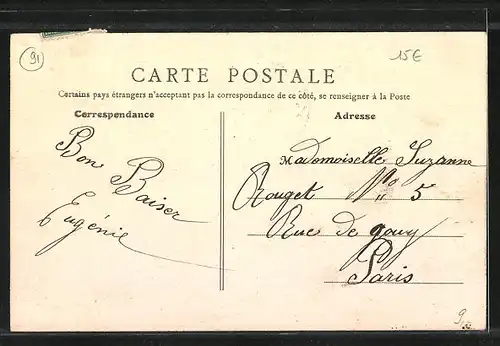 91
15€
CARTE POSTALE
Certains pays étrangers n'acceptant pas la correspondance de ce côté, se renseigner à la Poste
Correspondance
Adresse
Bon Baiser
Eugénie
Mademoiselle Suzanne
Rouget No 5
Rue de gouy
Paris